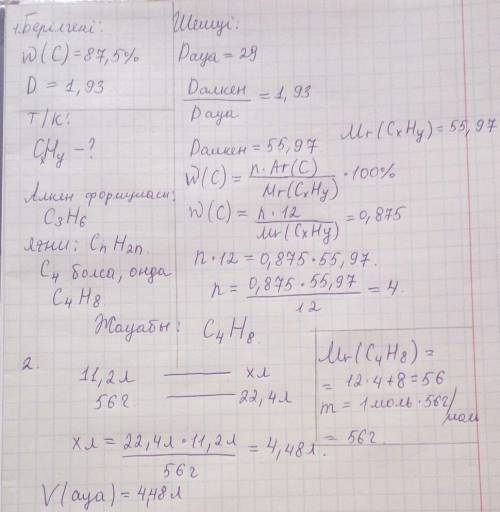 1. Берілгені:
W(C) = 87,5%
D = 1,93
Т/к:
CxHy - ?
Алкен формуласы:
C3H6
яғни: CnH2n
C4 болса, онда
C4H8.
Шешуі:
Dауа = 29
Dалкен/Dауа = 1,93
Dалкен = 55,97
Mr(CxHy) = 55,97
W(C) = n·Ar(C)/Mr(CxHy) · 100%
W(C) = n·12/Mr(CxHy) = 0,875
n·12 = 0,875·55,97.
n = 0,875·55,97/12 = 4.
Жауабы: C4H8.
2.
11,2л —— хл
56г —— 22,4л
хл = 22,4л·11,2л/56г = 4,48л.
V(ауа) = 4,48л
Mr(C4H8) =
= 12·4+8=56
m = 1моль·56г/моль
= 56г.